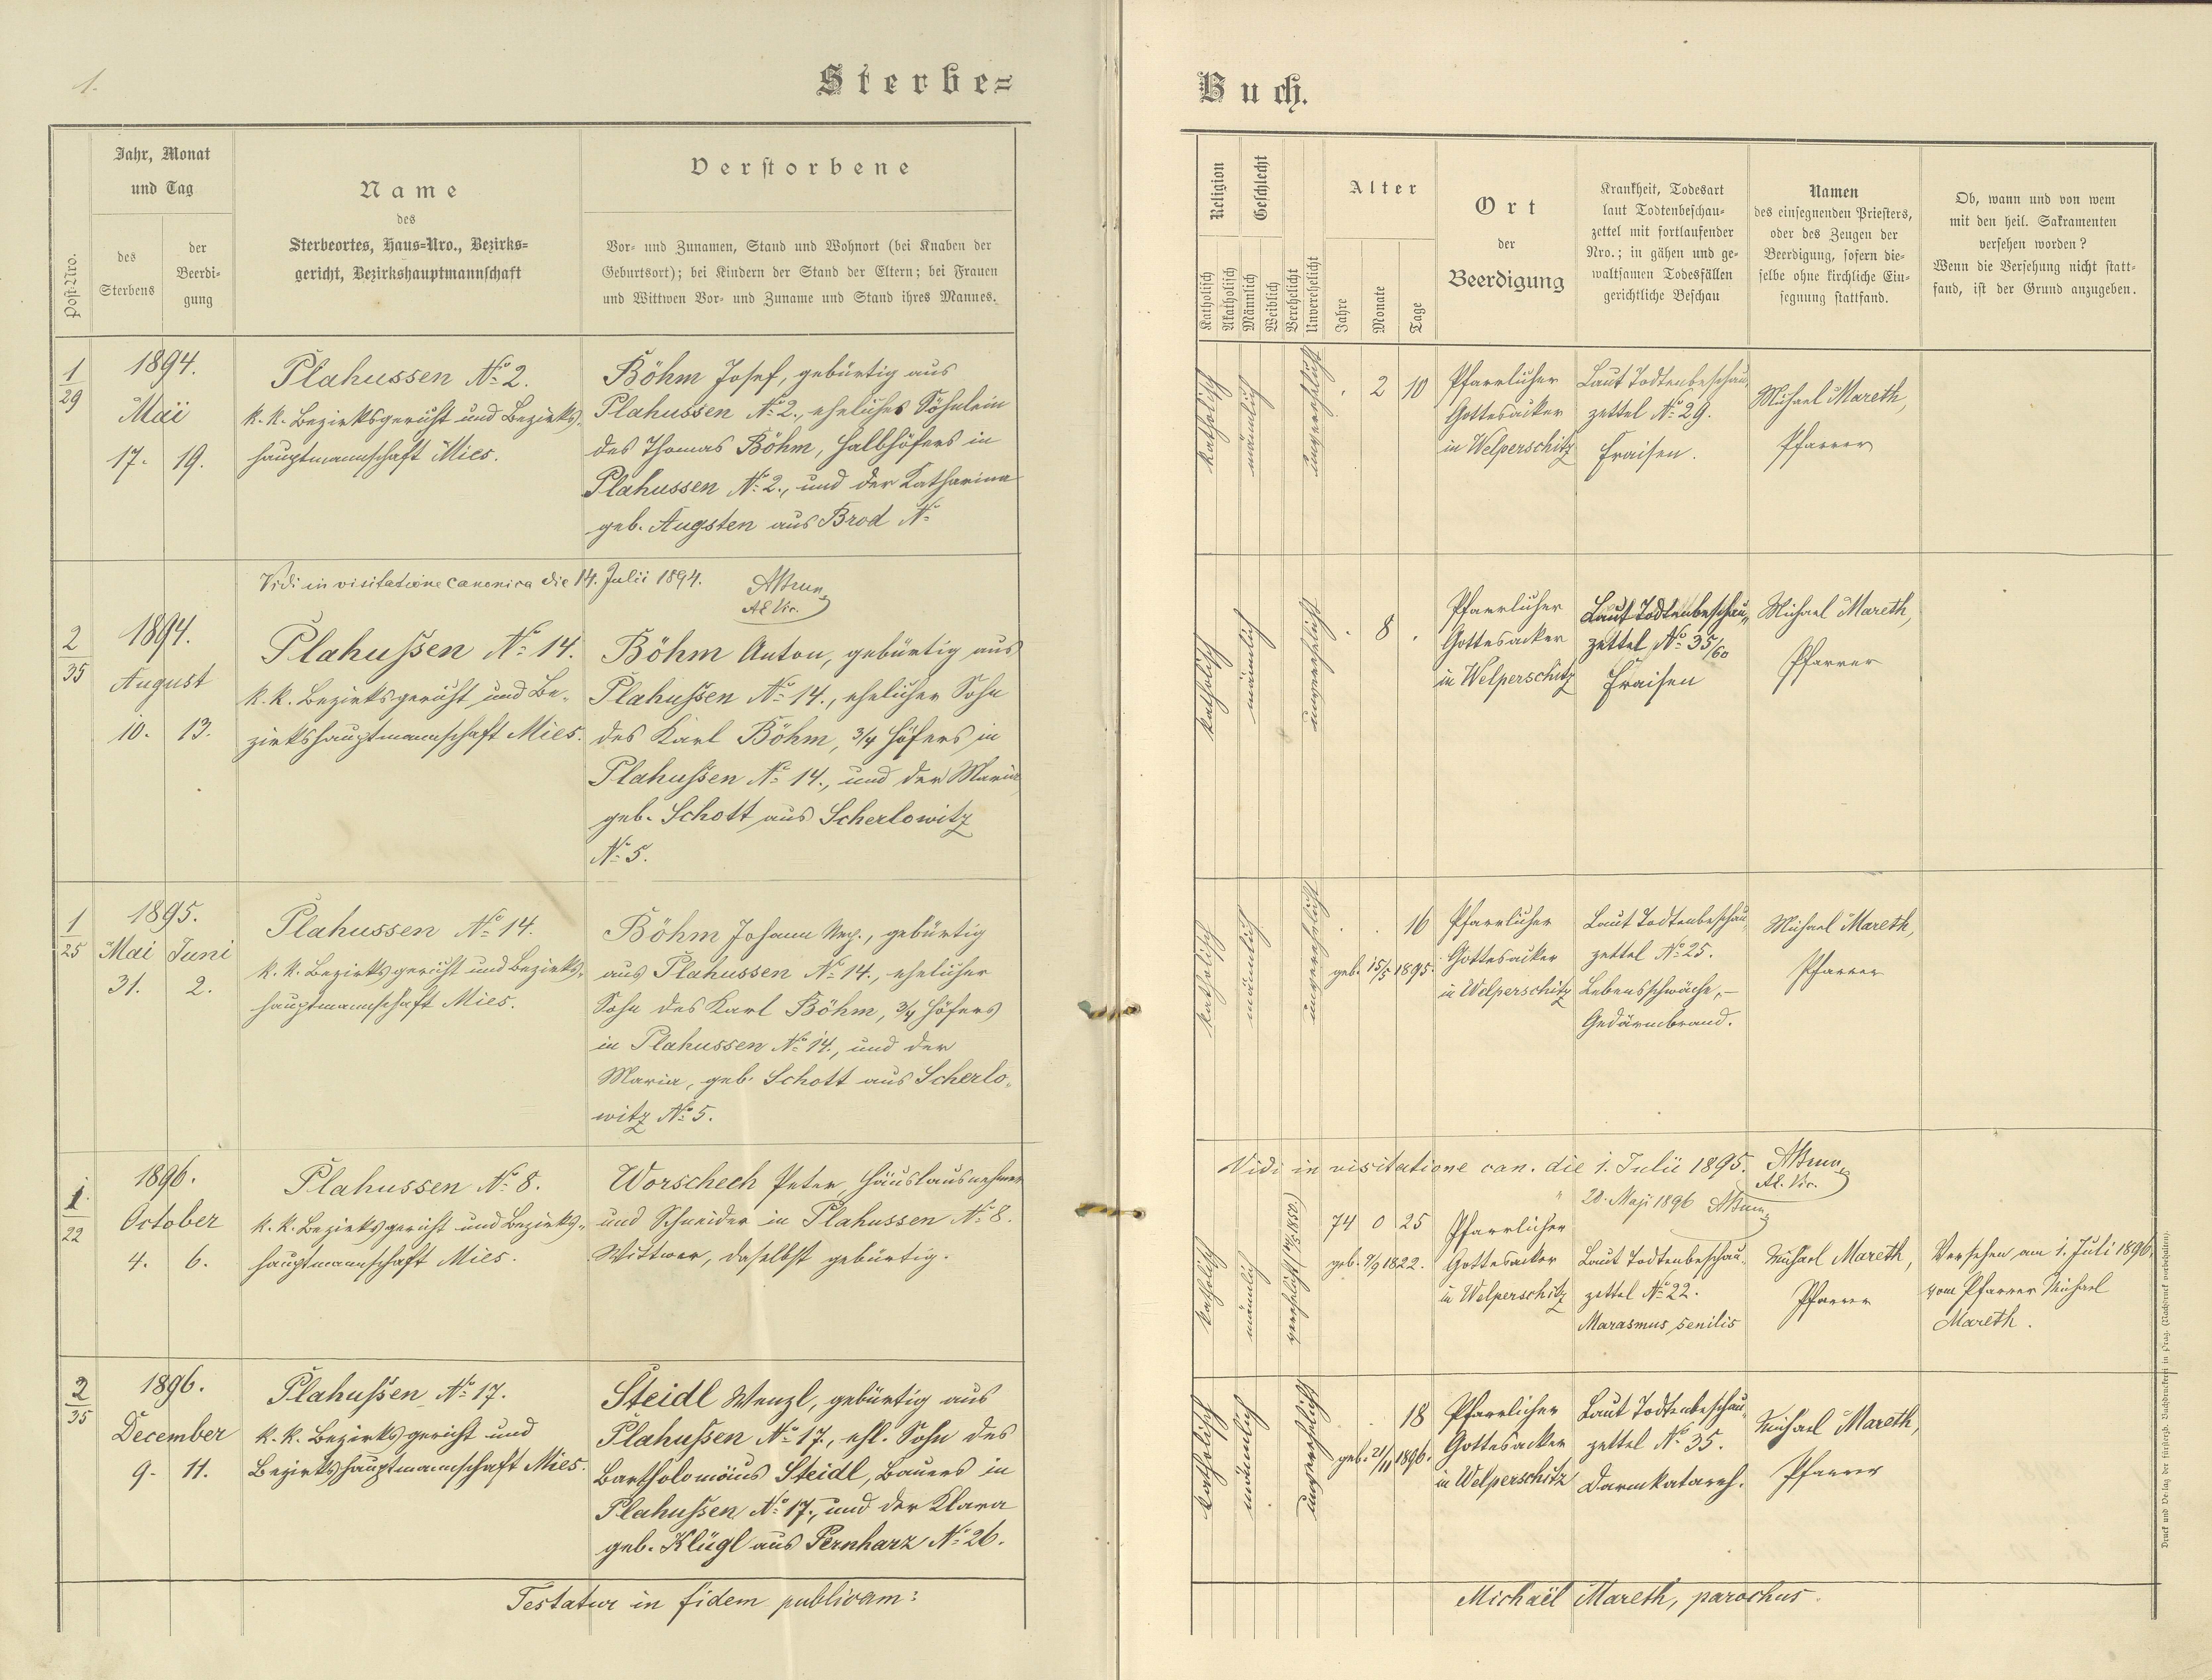 1.
Sterbe=
Buch.
Jahr, Monat
und Tag
des
Sterbens
der
Beerdi-
gung
Post-Nro.
Name
des
Sterbeortes, Haus=Nro., Bezirks=
gericht, Bezirkshauptmannschaft
Verstorbene
Vor- und Zunamen, Stand und Wohnort (bei Knaben der
Geburtsort); bei Kindern der Stand der Eltern; bei Frauen
und Wittwen Vor- und Zuname und Stand ihres Mannes.
Religion
Geschlecht
Katholisch
Akatholisch
Männlich
Weiblich
Verehelicht
Unverehelicht
Alter
Jahre
Monate
Tage
Ort
der
Beerdigung
Krankheit, Todesart
laut Todtenbeschau-
zettel mit fortlaufender
Nro.; in gähen und ge-
waltsamen Todesfällen
gerichtliche Beschau
Namen
des einsegnenden Priesters,
oder des Zeugen der
Beerdigung, sofern die-
selbe ohne kirchliche Ein-
segnung stattfand.
Ob, wann und von wem
mit den heil. Sakramenten
versehen worden?
Wenn die Versehung nicht statt-
fand, ist der Grund anzugeben.
1/29
1894.
Mai
17. 19.
Plahussen No 2.
k. k. Bezirksgericht und Bezirks-
hauptmannschaft Mies.
Böhm Josef, gebürtig aus
Plahussen No 2., eheliches Söhnlein
des Thomas Böhm, Halbhöfers in
Plahussen No 2., und der Katharina
geb. Augsten aus Brod No
katholisch
männlich
unverehelicht
. 2 10
Pfarrlicher
Gottesacker
in Welperschitz
Laut Todtenbeschau-
zettel No 29.
Fraisen.
Michael Mareth,
Pfarrer
Vidi in visitatione canonica die 14. Julii 1894.
2/35
1894.
August
10. 13.
Plahussen No 14.
k. k. Bezirksgericht und Be-
zirkshauptmannschaft Mies.
Böhm Anton, gebürtig aus
Plahussen No 14., ehelicher Sohn
des Karl Böhm, 3/4 Höfers in
Plahussen No 14., und der Maria
geb. Schott aus Scherlowitz
No 5.
katholisch
männlich
unverehelicht
. 8 .
Pfarrlicher
Gottesacker
in Welperschitz
Laut Todtenbeschau-
zettel No 35/60
Fraisen
Michael Mareth,
Pfarrer
1/25
1895.
Mai Juni
31. 2.
Plahussen No 14.
k. k. Bezirksgericht und Bezirks-
hauptmannschaft Mies.
Böhm Johann Nep., gebürtig
aus Plahussen No 14., ehelicher
Sohn des Karl Böhm, 3/4 Höfers
in Plahussen No 14., und der
Maria, geb. Schott aus Scherlo-
witz No 5.
katholisch
männlich
unverehelicht
. . 16
geb. 15/5 1895.
Pfarrlicher
Gottesacker
in Welperschitz
Laut Todtenbeschau-
zettel No 25.
Lebensschwäche,-
Gedärmbrand.
Michael Mareth,
Pfarrer
Vidi in visitatione can. die 1. Julii 1895.
" 20. Maji 1896
1/22
1896.
October
4. 6.
Plahussen No 8.
k. k. Bezirksgericht und Bezirks-
hauptmannschaft Mies.
Worschech Peter, Häuslausnehmer
und Schneider in Plahussen No 8.
Wittwer, daselbst gebürtig.
katholisch
männlich
74 0 25
geb. 9/9 1822.
Pfarrlicher
Gottesacker
in Welperschitz
Laut Todtenbeschau-
zettel No 22.
Marasmus senilis
Michael Mareth,
Pfarrer
Versehen am 1. Juli 1896.
vom Pfarrer Michael
Mareth.
2/35
1896.
December
9. 11.
Plahussen No 17.
k. k. Bezirksgericht und
Bezirkshauptmannschaft Mies.
Steidl Wenzl, gebürtig aus
Plahussen No 17., ehl. Sohn des
Bartholomäus Steidl, Bauers in
Plahussen No 17., und der Klara
geb. Klügl aus Pernharz No 26.
katholisch
männlich
unverehelicht
. 18
geb. 21/11 1896.
Pfarrlicher
Gottesacker
in Welperschitz
Laut Todtenbeschau-
zettel No 35.
Darmkatarrh.
Michael Mareth,
Pfarrer
Testatur in fidem publicam:
Michaël Mareth, parochus.
Druck und Verlag der fürsterzb. Buchdruckerei in Prag. (Nachdruck vorbehalten).